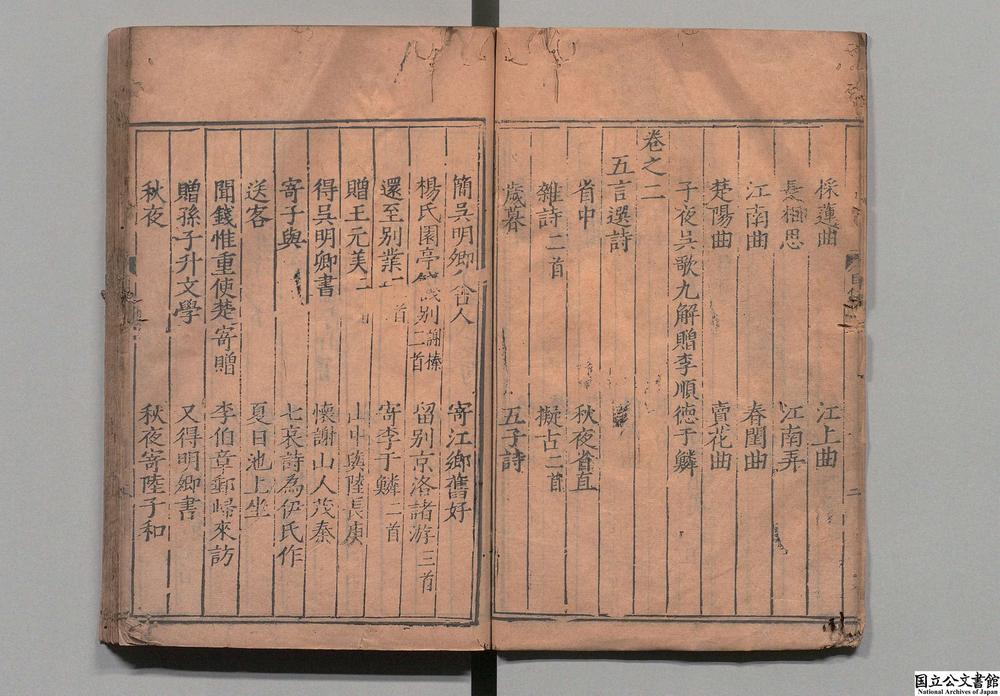 採蓮曲 江上曲
長相思 江南弄
江南曲 春閨曲
楚陽曲 賣花曲
子夜吳歌九解贈李順德于鱗
卷之二
五言選詩
省中 秋夜省直
雜詩二首 擬古二首
歲暮 五子詩
簡吳明卿舍人 寄江鄉舊好
楊氏園亭餞別謝榛二首 留別京洛諸游三首
還至別業 首 寄李于鱗二首
贈王元美二 山中與陸長庚
得吳明卿書 懷謝山人茂秦
寄子與 七哀詩為伊氏作
送客 夏日池上坐
聞錢惟重使楚寄贈 李伯章郵歸來訪
贈孫子升文學 又得明卿書
秋夜 秋夜寄陸子和
国立公文書館
National Archives of Japan